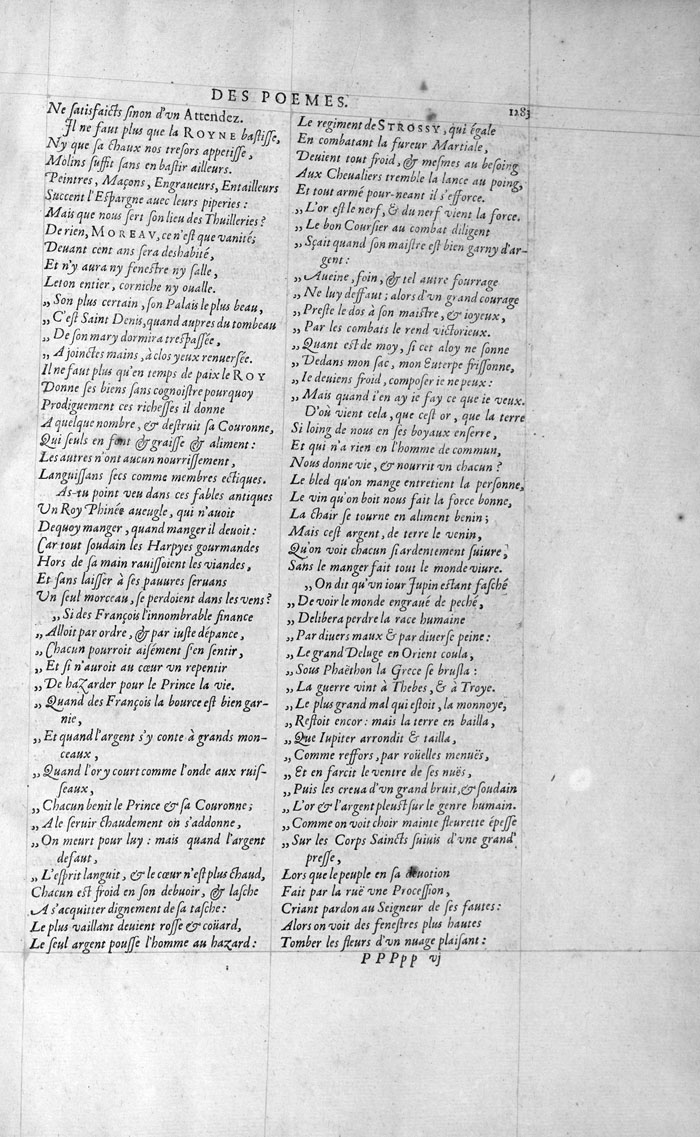 DES POEMES.
1283
Ne ſatisfaicts ſinon d'vn Attendez.
Il ne faut plus que la ROYNE baſtiſſe,
Ny que ſa chaux nos treſors appetiſſe,
Molins ſuffit ſans en baſtir ailleurs.
Peintres, Maçons, Engraueurs, Entailleurs
Succent l'Eſpargne auec leurs piperies:
Mais que nous ſert ſon lieu des Thuilleries?
De rien, MOREAV, ce n'eſt que vanité;
Deuant cent ans ſera deshabité,
Et n'y aura ny feneſtre ny ſalle,
Leton entier, corniche ny oualle.
„ Son plus certain, ſon Palais le plus beau,
„ C'eſt Saint Denis, quand aupres du tombeau
„ De ſon mary dormira treſpaſſée,
„ A joinctes mains, à clos yeux renuerſée.
Il ne faut plus qu'en temps de paix le ROY
Donne ſes biens ſans cognoiſtre pourquoy
Prodiguement ces richeſſes il donne
A quelque nombre, & deſtruiſt ſa Couronne,
Qui ſeuls en font & graiſſe & aliment:
Les autres n'ont aucun nourriſſement,
Languiſſans ſecs comme membres ectiques.
As-tu point veu dans ces fables antiques
Vn Roy Phinée aueugle, qui n'auoit
Dequoy manger, quand manger il deuoit:
Car tout ſoudain les Harpyes gourmandes
Hors de ſa main rauiſſoient les viandes,
Et ſans laiſſer à ſes pauures ſeruans
Vn ſeul morceau, ſe perdoient dans les vens?
„ Si des François l'innombrable finance
„ Alloit par ordre, & par iuſte dépance,
„ Chacun pourroit aiſément s'en ſentir,
„ Et ſi n'auroit au cœur vn repentir
„ De haZarder pour le Prince la vie.
„ Quand des François la bource eſt bien gar-
nie,
„ Et quand l'argent s'y conte à grands mon-
ceaux,
„ Quand l'or y court comme l'onde aux ruiſ-
ſeaux,
„ Chacun benit le Prince & ſa Couronne;
„ A le ſeruir chaudement on s'addonne,
„ On meurt pour luy: mais quand l'argent
defaut,
„ L'eſprit languit, & le cœur n'eſt plus chaud,
Chacun eſt froid en ſon debuoir, & laſche
A s'acquitter dignement de ſa taſche:
Le plus vaillant deuient roſſe & coüard,
Le ſeul argent pouſſe l'homme au haZard:
Le regiment de STROSSY, qui égale
En combatant la fureur Martiale,
Deuient tout froid, & meſmes au beſoing
Aux Cheualiers tremble la lance au poing,
Et tout armé pour-neant il s'efforce.
„ L'or eſt le nerf, & du nerf vient la force.
„ Le bon Courſier au combat diligent
„ Sçait quand ſon maiſtre eſt bien garny d'ar-
gent:
„ Aueine, foin, & tel autre fourrage
„ Ne luy deffaut; alors d'vn grand courage
„ Preſte le dos à ſon maiſtre, & ioyeux,
„ Par les combats le rend victorieux.
„ Quant eſt de moy, ſi cet aloy ne ſonne
„ Dedans mon ſac, mon Euterpe friſſonne,
„ Ie deuiens froid, compoſer ie ne peux:
„ Mais quand i'en ay ie fay ce que ie veux.
D'où vient cela, que ceſt or, que la terre
Si loing de nous en ſes boyaux enſerre,
Et qui n'a rien en l'homme de commun,
Nous donne vie, & nourrit vn chacun?
Le bled qu'on mange entretient la perſonne,
Le vin qu'on boit nous fait la force bonne,
La chair ſe tourne en aliment benin;
Mais ceſt argent, de terre le venin,
Qu'on voit chacun ſi ardentement ſuiure,
Sans le manger fait tout le monde viure.
„ On dit qu'vn iour Jupin eſtant faſché
„ De voir le monde engraué de peché,
„ Delibera perdre la race humaine
„ Par diuers maux & par diuerſe peine:
„ Le grand Deluge en Orient coula,
„ Sous Phaëthon la Grece ſe bruſla:
„ La guerre vint à Thebes, & à Troye.
„ Le plus grand mal qui eſtoit, la monnoye,
„ Reſtoit encor: mais la terre en bailla,
„ Que Iupiter arrondit & tailla,
„ Comme reſſors, par roüelles menuës,
„ Et en farcit le ventre de ſes nuës,
„ Puis les creua d'vn grand bruit, & ſoudain
„ L'or & l'argent pleuſt ſur le genre humain.
„ Comme on voit choir mainte fleurette épeſſe
„ Sur les Corps Saincts ſuiuis d'vne grand'
preſſe,
Lors que le peuple en ſa deuotion
Fait par la ruë vne Proceſſion,
Criant pardon au Seigneur de ſes fautes:
Alors on voit des feneſtres plus hautes
Tomber les fleurs d'vn nuage plaiſant:
PPPpp vj